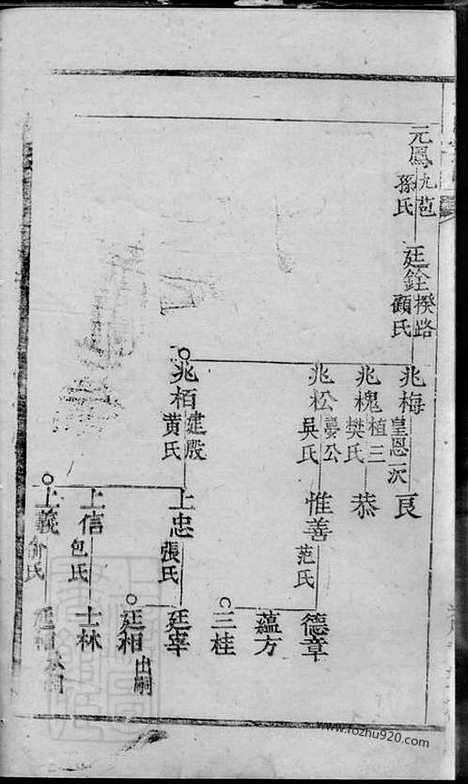 元鳳九苞
孫氏
廷銓揆路
顧氏
兆梅皇恩一次
良
兆槐植三
樊氏
恭
兆松夢公
吳氏
惟善
范氏
德章
蘊方
三桂
兆栢建殿
黄氏
上忠
張氏
廷宰
廷相出嗣
上信
包氏
士林
上義
俞氏
廷相
www.fozhu920.com